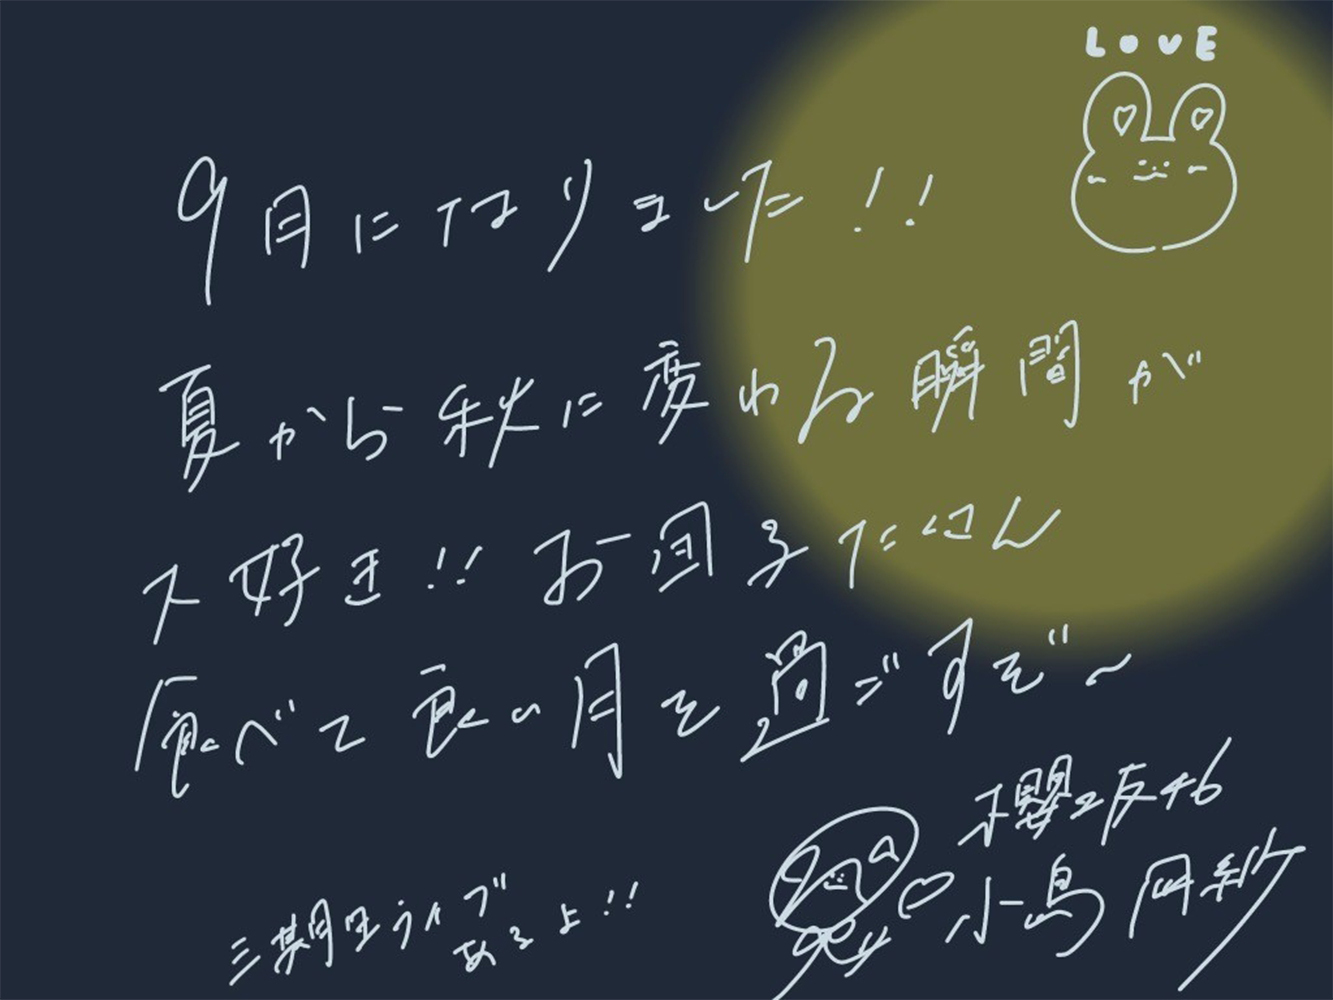 LOVE
9月になりました!!
夏から秋に変わる瞬間が
大好き!! お団子たくさん
食べて良い月を過ごすぞ〜
櫻坂46
小島凪紗
三期生ライブ
あるよ!!